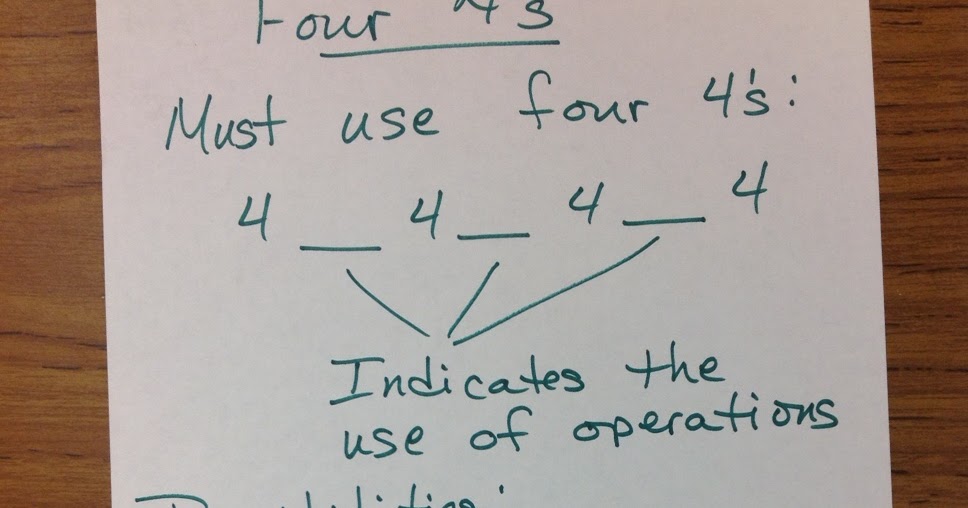 Four 4's
Must use four 4's:
4 __ 4 __ 4 __ 4
Indicates the
use of operations